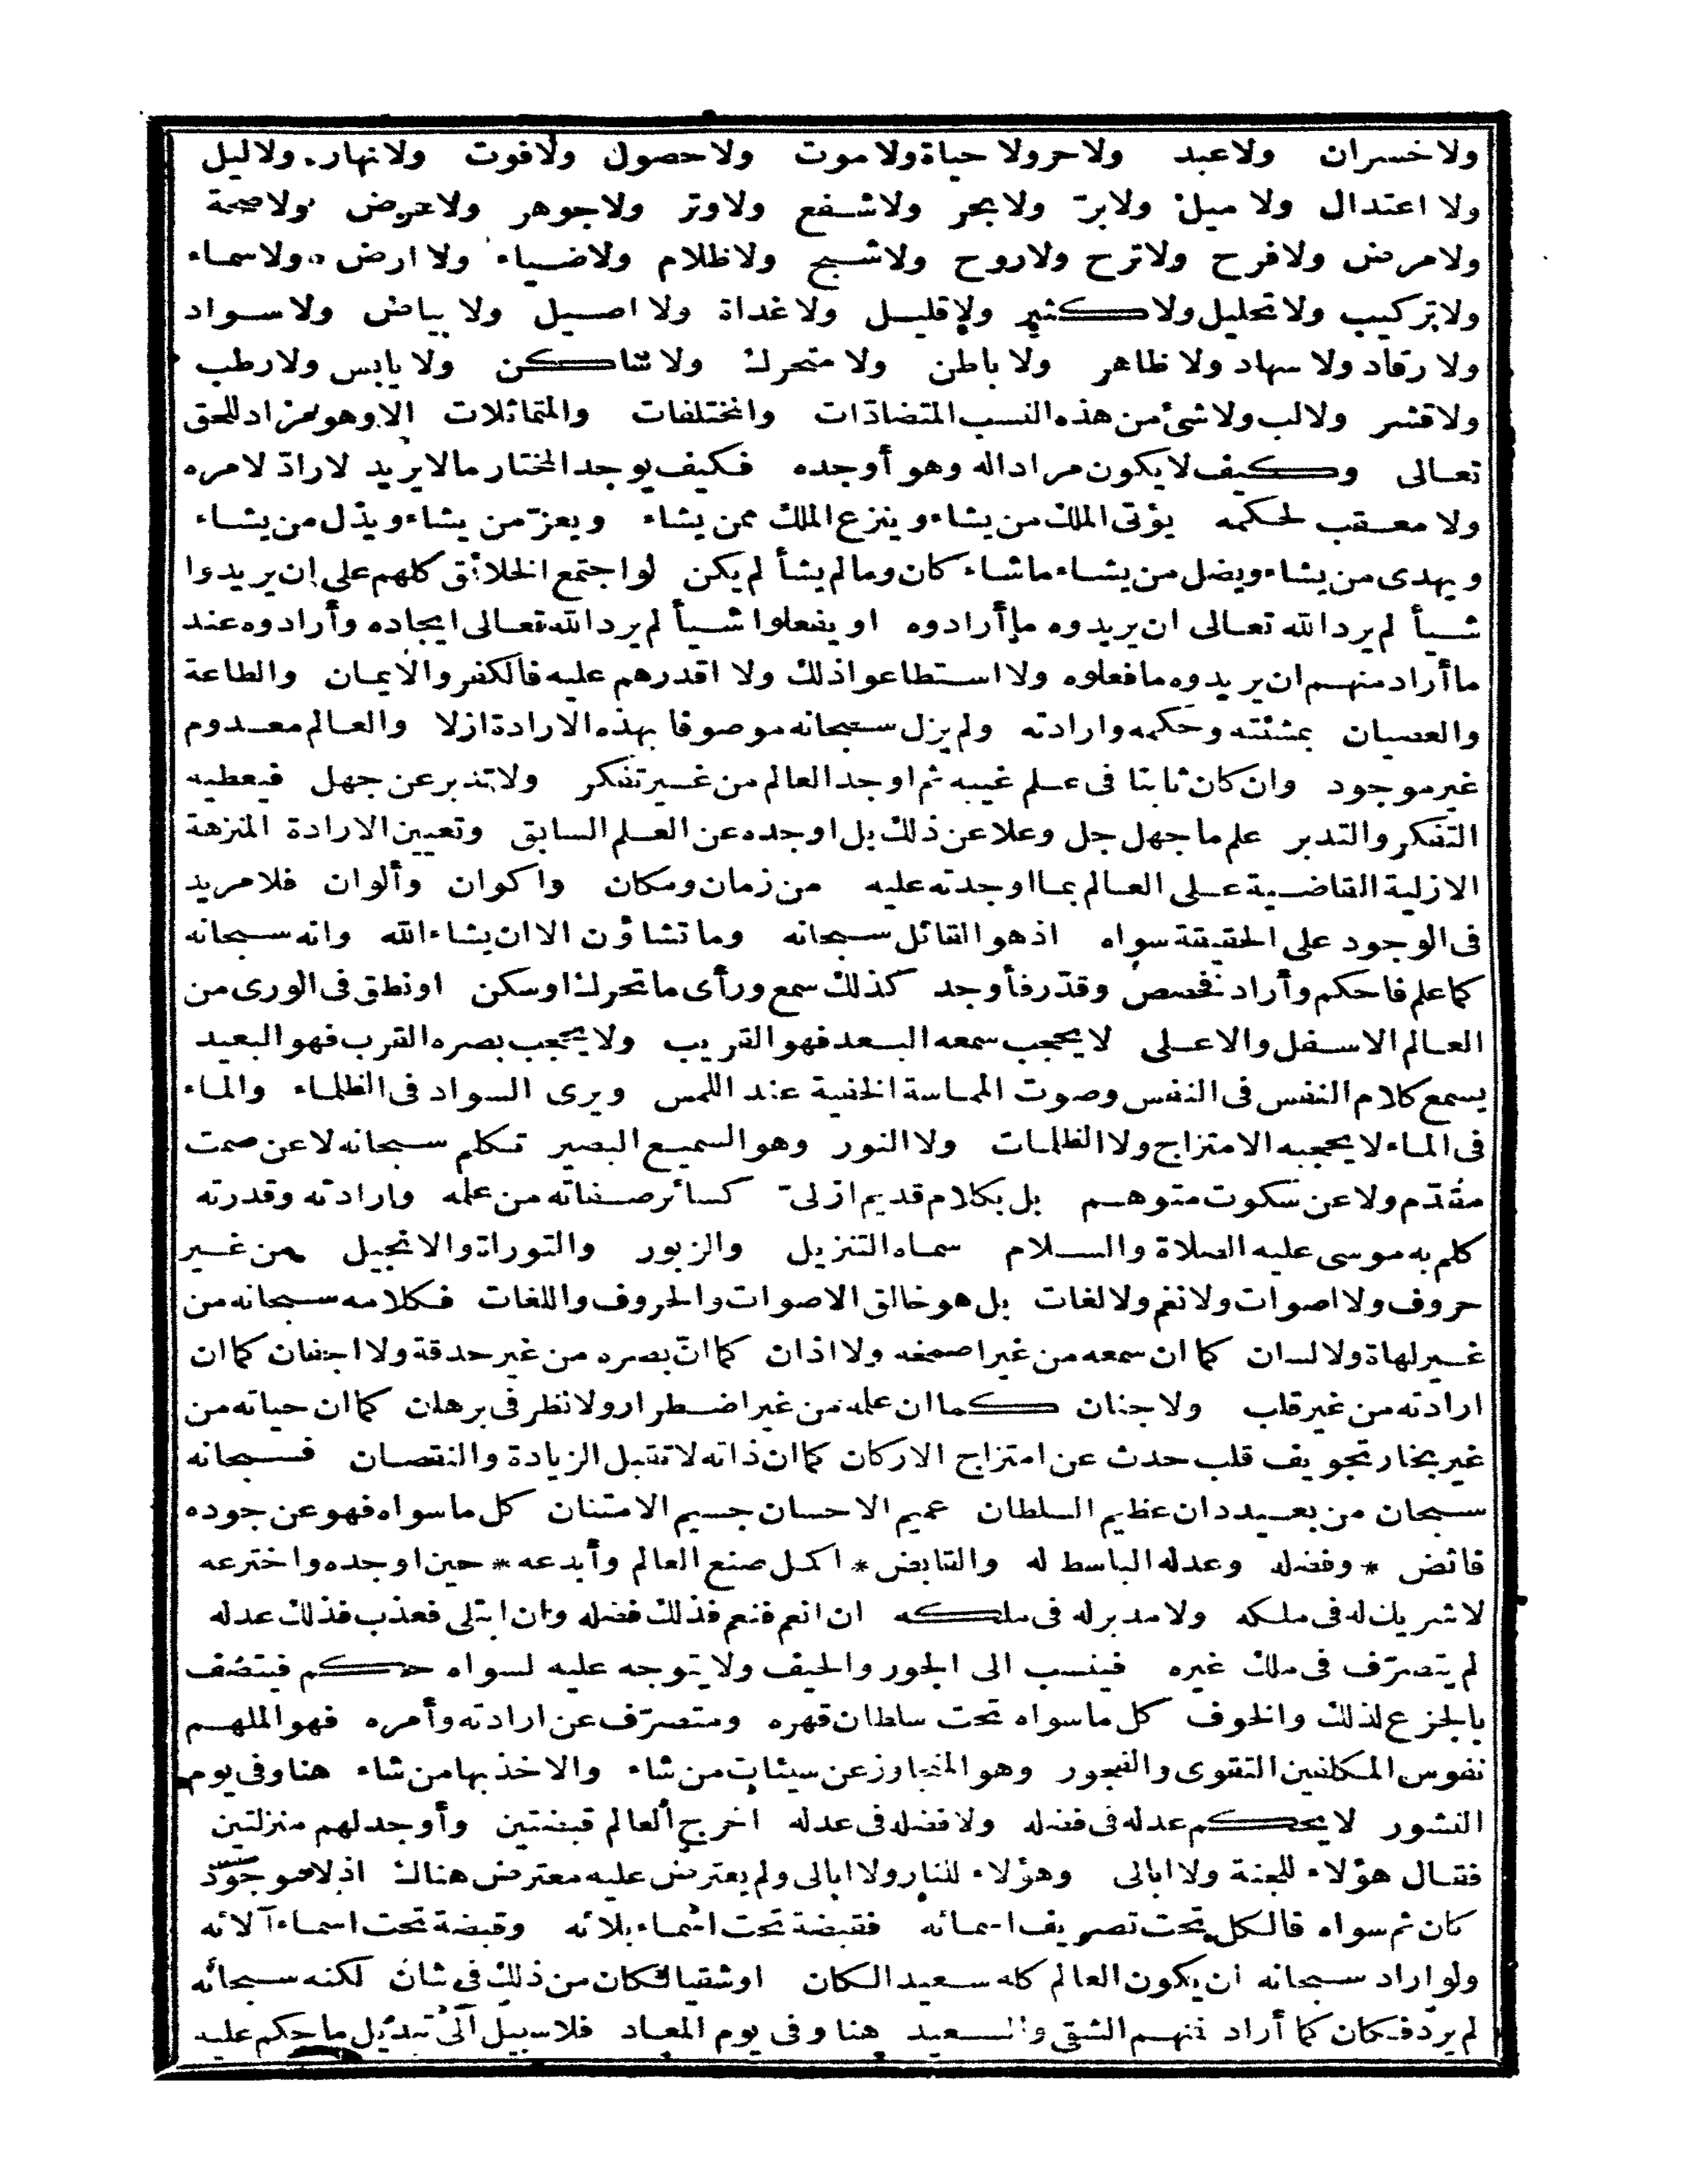 ولا خسران ولا عبد ولا حر ولا حياة ولا موت ولا حصول ولا فوت ولا نهار. ولا ليل
ولا اعتدال ولا ميل ولا برّ ولا بحر ولا شفع ولا وتر ولا جوهر ولا عرض ولا صحة
ولا مرض ولا فرح ولا ترح ولا روح ولا شبح ولا ظلام ولا ضياء ولا ارض ولا سماء
ولا تركيب ولا تحليل ولا كثير ولا قليل ولا غداة ولا اصيل ولا بياض ولا سواد
ولا رقاد ولا سهاد ولا ظاهر ولا باطن ولا متحرك ولا ساكن ولا يابس ولا رطب
ولا قشر ولا لب ولا شئ من هذه النسب المتضادّات والمختلفات والمتماثلات الا وهو مراد للحق
تعالى وكيف لا يكون مراداله وهو أوجده فكيف يوجد المختار مالا يريد لا رادّ لامره
ولا معقب لحكمه يؤتى الملك من يشاء وينزع الملك ممن يشاء ويعزّ من يشاء ويذل من يشاء
ويهدى من يشاء ويضل من يشاء ماشاء كان وما لم يشأ لم يكن لو اجتمع الخلائق كلهم على ان يريدوا
شيأ لم يرد الله تعالى ان يريدوه ما أرادوه او يفعلوا شيأ لم يرد الله تعالى ايجاده وأرادوه عند
ما أراد منهم ان يريدوه ما فعلوه ولا استطاعوا ذلك ولا اقدرهم عليه فالكفر والايمان والطاعة
والعصيان بمشئته وحكمه وارادته ولم يزل سبحانه موصوفا بهذه الارادة ازلا والعالم معدوم
غير موجود وان كان ثابتا فى علم غيبه ثم اوجد العالم من غير تفكر ولا تدبر عن جهل فيعطيه
التفكر والتدبر علم ما جهل جل وعلا عن ذلك بل اوجده عن العلم السابق وتعيين الارادة المنزهة
الازلية القاضية على العالم بما اوجدته عليه من زمان ومكان واكوان وألوان فلا مريد
فى الوجود على الحقيقة سواه اذ هو القائل سبحانه وما تشاؤن الا ان يشاء الله وانه سبحانه
كما علم فاحكم وأراد فخصص وقدّر فأوجد كذلك سمع ورأى ما تحرك اوسكن اونطق فى الورى من
العالم الاسفل والاعلى لا يحجب سمعه البعد فهو القريب ولا يحجب بصره القرب فهو البعيد
يسمع كلام النفس فى النفس وصوت المماسة الخفية عند اللمس ويرى السواد فى الظلماء والماء
فى الماء لا يحجبه الامتزاج ولا الظلمات ولا النور وهو السميع البصير تكلم سبحانه لا عن صمت
مقدّم ولا عن سكوت متوهم بل بكلام قديم ازلىّ كسائر صفاته من علمه وارادته وقدرته
كلم به موسى عليه الصلاة والسلام سماه التنزيل والزبور والتوراة والانجيل من غير
حروف ولا اصوات ولا نغم ولا لغات بل هو خالق الاصوات والحروف واللغات فكلامه سبحانه من
غير لهاة ولا لسان كما ان سمعه من غير اصمغه ولا اذان كما انّ بصره من غير حدقة ولا اجفان كما ان
ارادته من غير قلب ولا جنان كما ان علمه من غير اضطرار ولا نظر فى برهان كما ان حياته من
غير بخار تجويف قلب حدث عن امتزاج الاركان كما ان ذاته لا تقبل الزيادة والنقصان فسبحانه
سبحان من بعيد دان عظيم السلطان عميم الاحسان جسيم الامتنان كل ما سواه فهو عن جوده
فائض * وفضله وعدله الباسط له والقابض * اكمل صنع العالم وأبدعه * حين اوجده واخترعه
لا شريك له فى ملكه ولا مدبر له فى ملكه ان انعم فنعم فذلك فضله وان ابتلى فعذب فذلك عدله
لم يتصرّف فى ملك غيره فينسب الى الجور والحيف ولا يتوجه عليه لسواه حكم فيتصف
بالجزع لذلك والخوف كل ما سواه تحت سلطان قهره ومتصرّف عن ارادته وأمره فهو الملهم
نفوس المكلفين التقوى والفجور وهو المتجاوز عن سيئات من شاء والاخذ بها من شاء هنا وفى يوم
النشور لا يحكم عدله فى فضله ولا فضله فى عدله اخرج العالم قبضتين وأوجد لهم منزلتين
فقال هؤلاء للجنة ولا ابالى وهؤلاء للنار ولا ابالى ولم يعترض عليه معترض هناك اذ لا موجود
كان ثم سواه فالكل تحت تصريف اسمائه فقبضة تحت اسماء بلائه وقبضة تحت اسماء آلائه
ولو اراد سبحانه ان يكون العالم كله سعيد الكان اوشقيا لكان من ذلك فى شان لكنه سبحانه
لم يرد فكان كما أراد فمنهم الشقى والسعيد هنا وفى يوم المعاد فلا سبيل الى تبديل ما حكم عليه